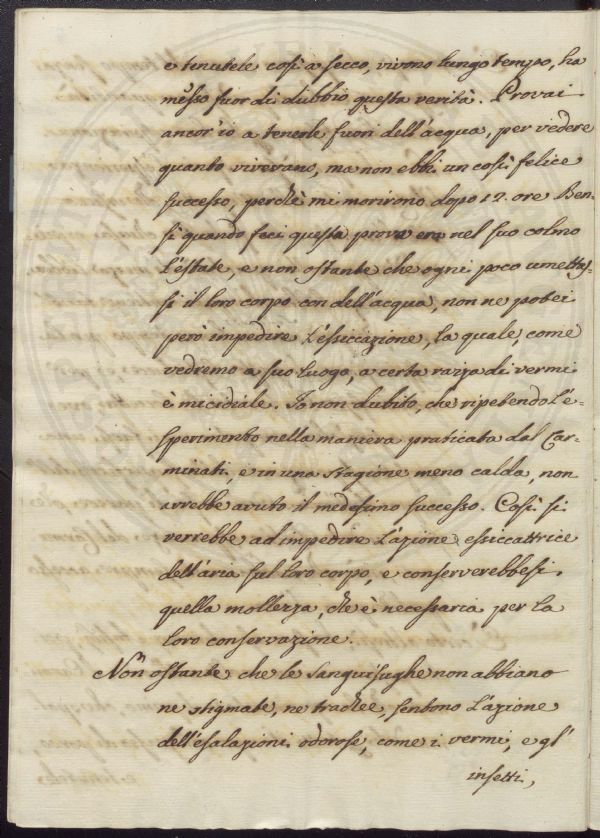 e tenutele così a secco, vivono lungo tempo, ha
messo fuor di dubbio questa verità. Provai
ancor'io a tenerle fuori dell'acqua, per vedere
quanto vivevano, ma non ebbi un così felice
successo, perchè mi morirono dopo 12. ore Ben-
sì quando feci questa prova era nel suo colmo
l'estate, e non ostante che ogni poco umettas-
si il loro corpo con dell'acqua, non ne potei
però impedire l'essiccazione, la quale, come
vedremo a suo luogo, a certa razza di vermi
è micidiale. Io non dubito, che ripetendo l'e-
sperimento nella maniera praticata dal Car-
minati, e in una stagione meno calda, non
avrebbe avuto il medesimo successo. Così si
verrebbe ad impedire l'azione essiccattrice
dell'aria sul loro corpo, e conserverebbesi
quella mollezza, che è necessaria per la
loro conservazione.
Non ostante che le sanguisughe non abbiano
ne stigmate, ne trachee, sentono l'azione
dell'esalazioni odorose, come i vermi, e gl'
insetti,